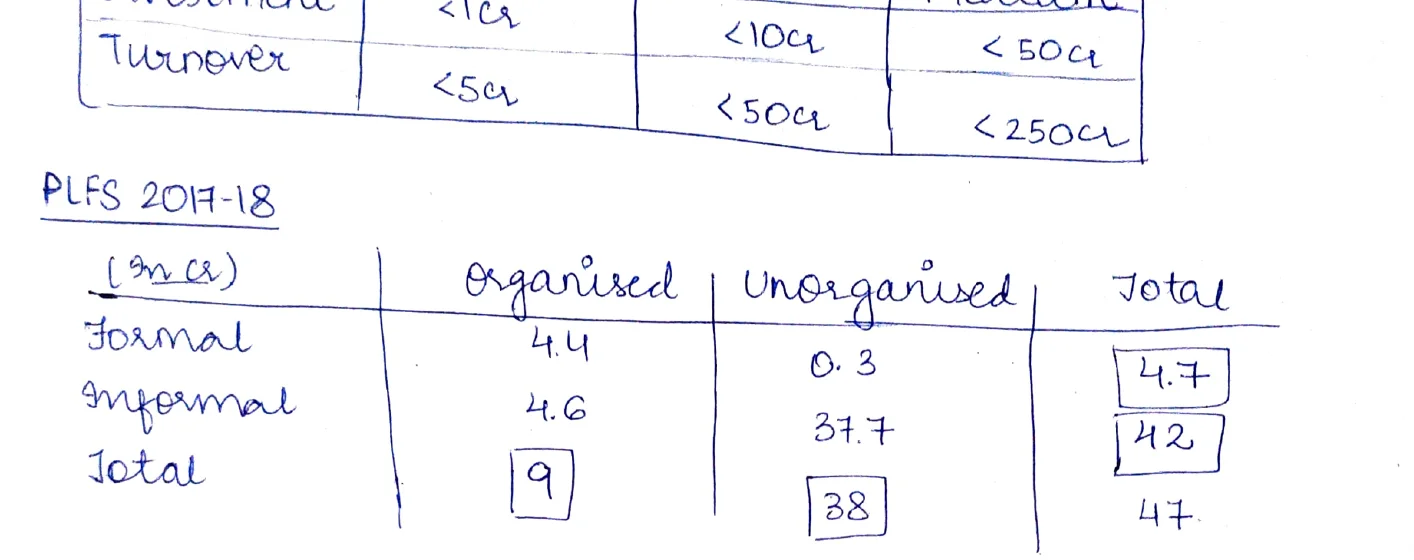 <1cr
Turnover <10cr <50cr
<5cr <50cr <250cr
PLFS 2017-18
(In cr) Organised Unorganised Total
Formal 4.4 0.3 4.7
Informal 4.6 37.7 42
Total 9 38 47